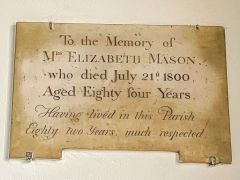 To the Memory of
Mrs ELIZABETH MASON.
who died July 21st 1800.
Aged Eighty four Years.
Having lived in this Parish
Eighty two Years, much respected.